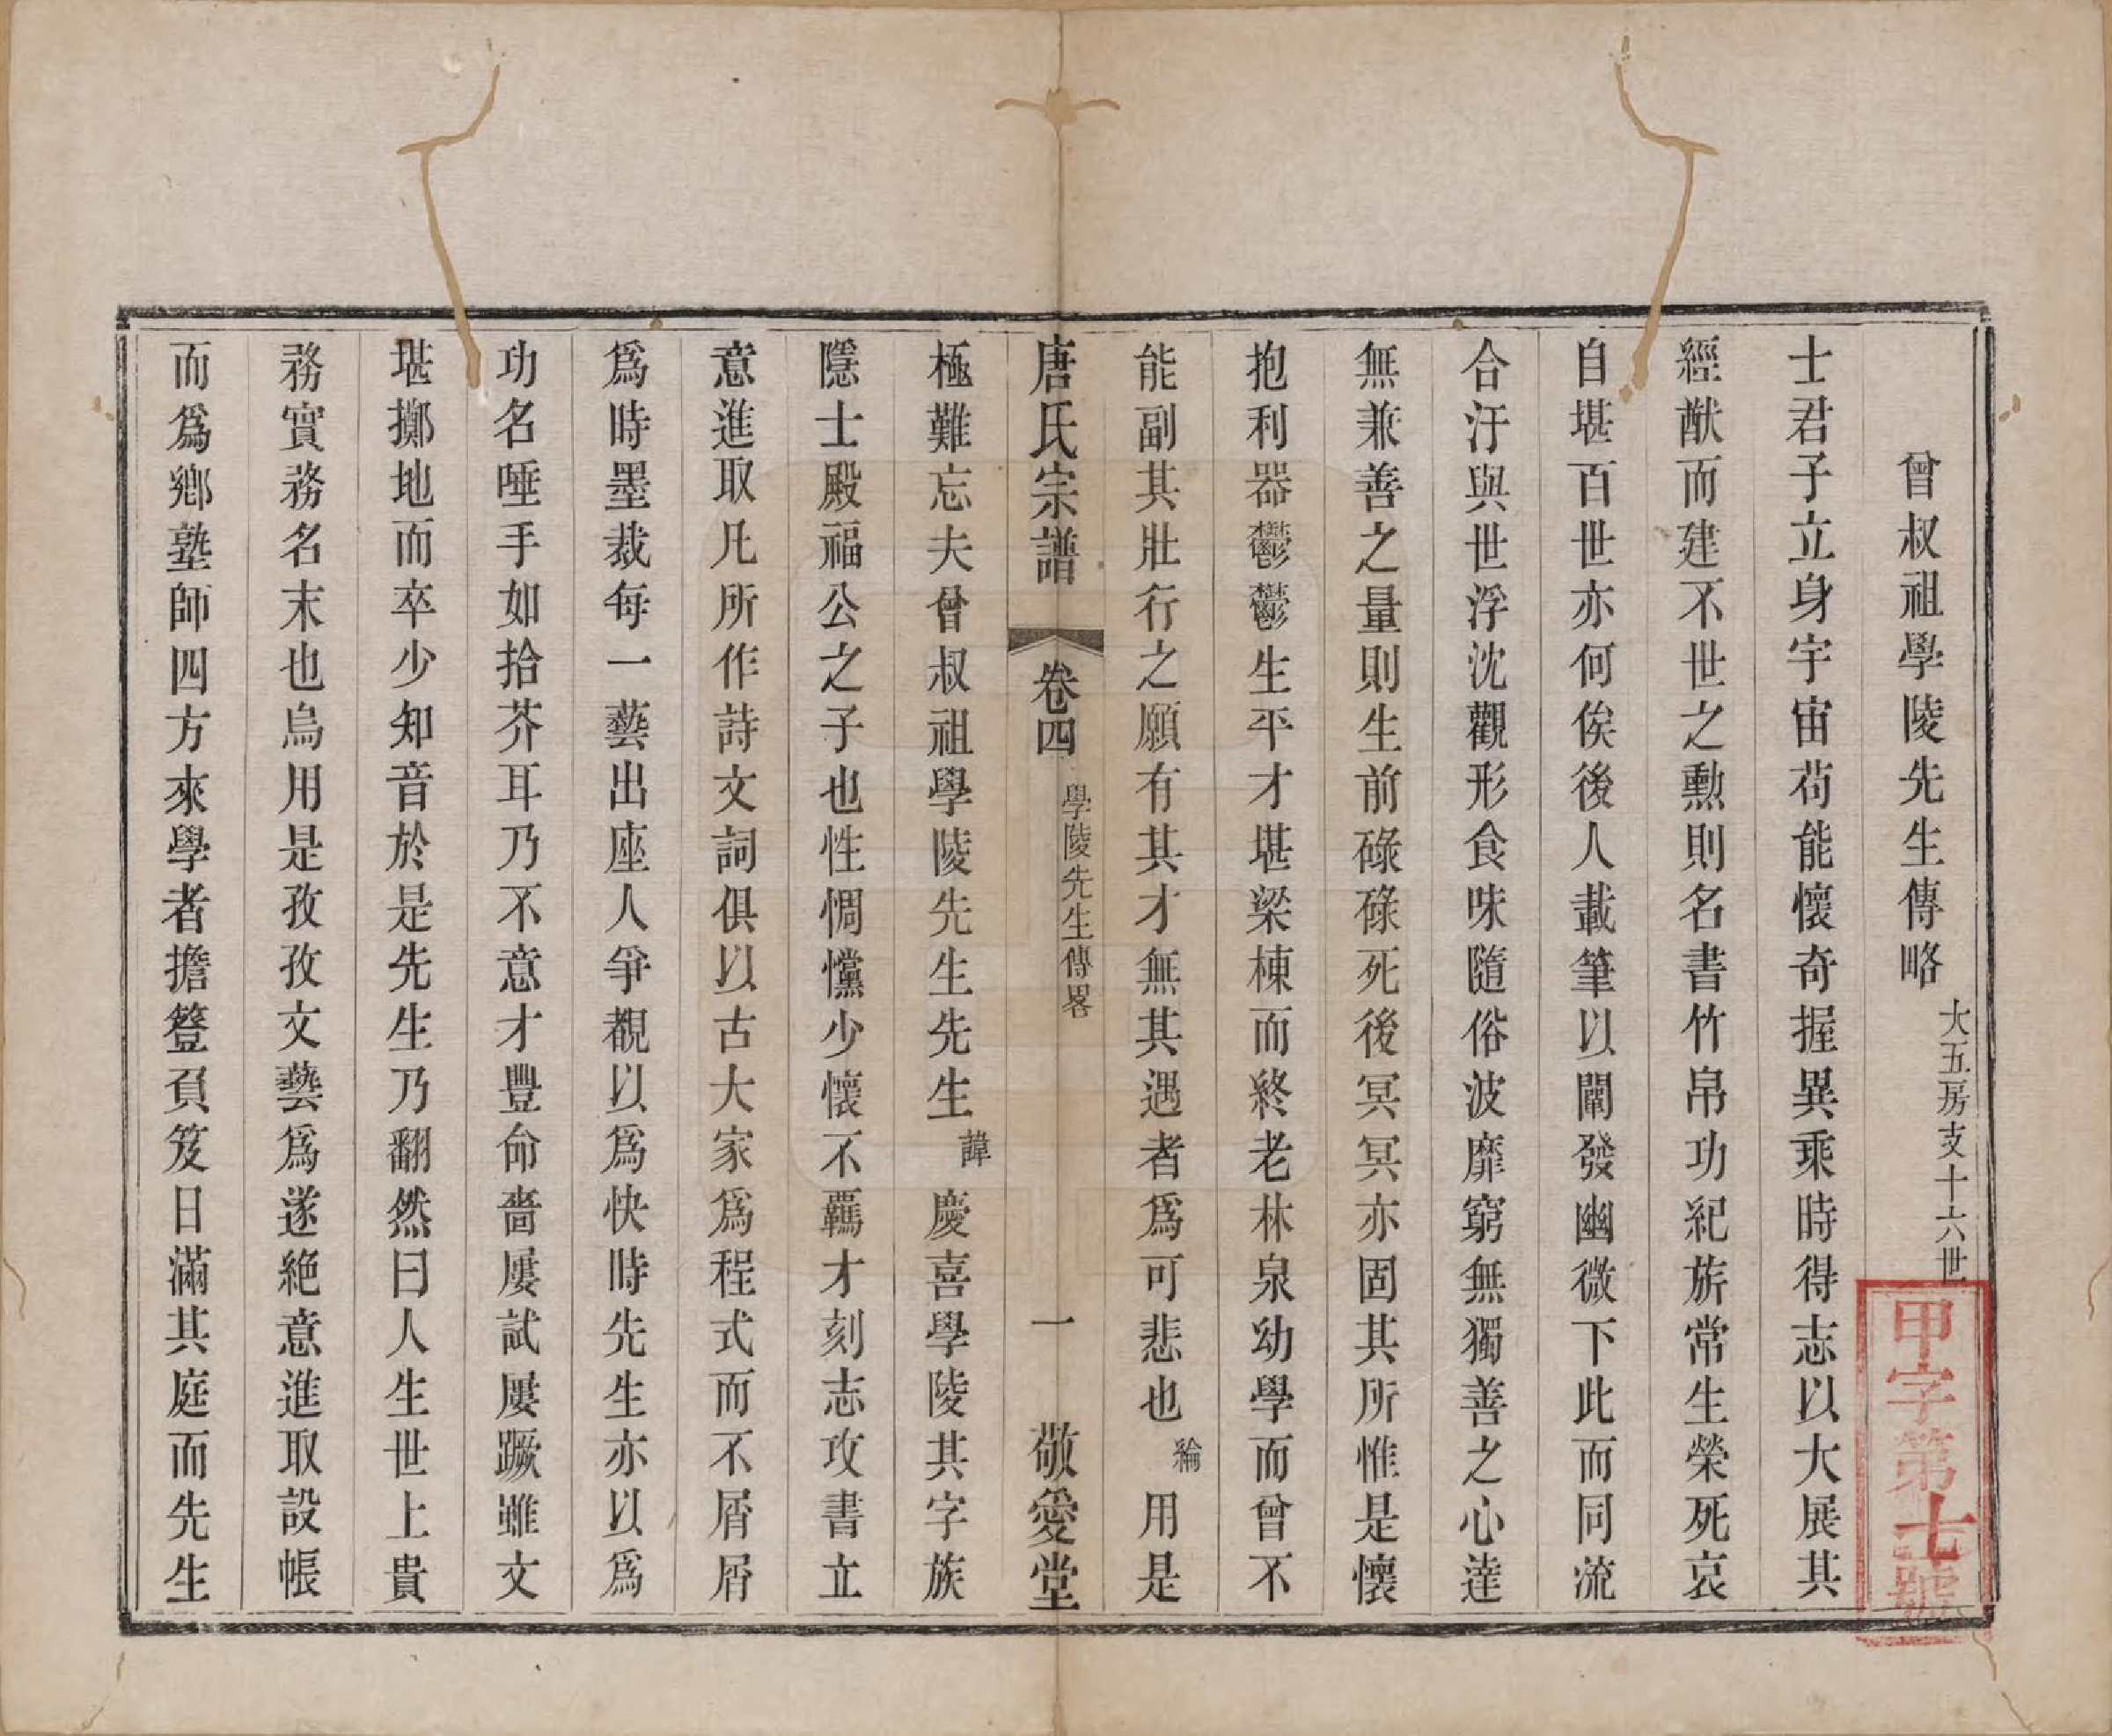 曾叔祖學陵先生傳略 大五房支十六世
士君子立身宇宙苟能懷奇握異乘時得志以大展其
經猷而建不世之勲則名書竹帛功紀旂常生榮死哀
自堪百世亦何俟後人載筆以闡發幽微下此而同流
合汙與世浮沈觀形食味隨俗波靡窮無獨善之心達
無兼善之量則生前碌碌死後冥冥亦固其所惟是懷
抱利器鬱鬱生平才堪梁棟而終老林泉幼學而曾不
能副其壯行之願有其才無其遇者爲可悲也綸用是
唐氏宗譜 卷四 學陵先生傳畧 一 敬愛堂
極難忘夫曾叔祖學陵先生先生諱慶喜學陵其字族
隱士殿福公之子也性惆戃少懷不羈才刻志攻書立
意進取凡所作詩文詞俱以古大家爲程式而不屑屑
爲時墨裁每一藝出座人爭覩以爲快時先生亦以爲
功名唾手如拾芥耳乃不意才豐命嗇屢試屢蹶雖文
堪擲地而卒少知音於是先生乃翻然曰人生世上貴
務實務名末也烏用是孜孜文藝爲遂絕意進取設帳
而爲鄉塾師四方來學者擔簦負笈日滿其庭而先生
甲字第七號